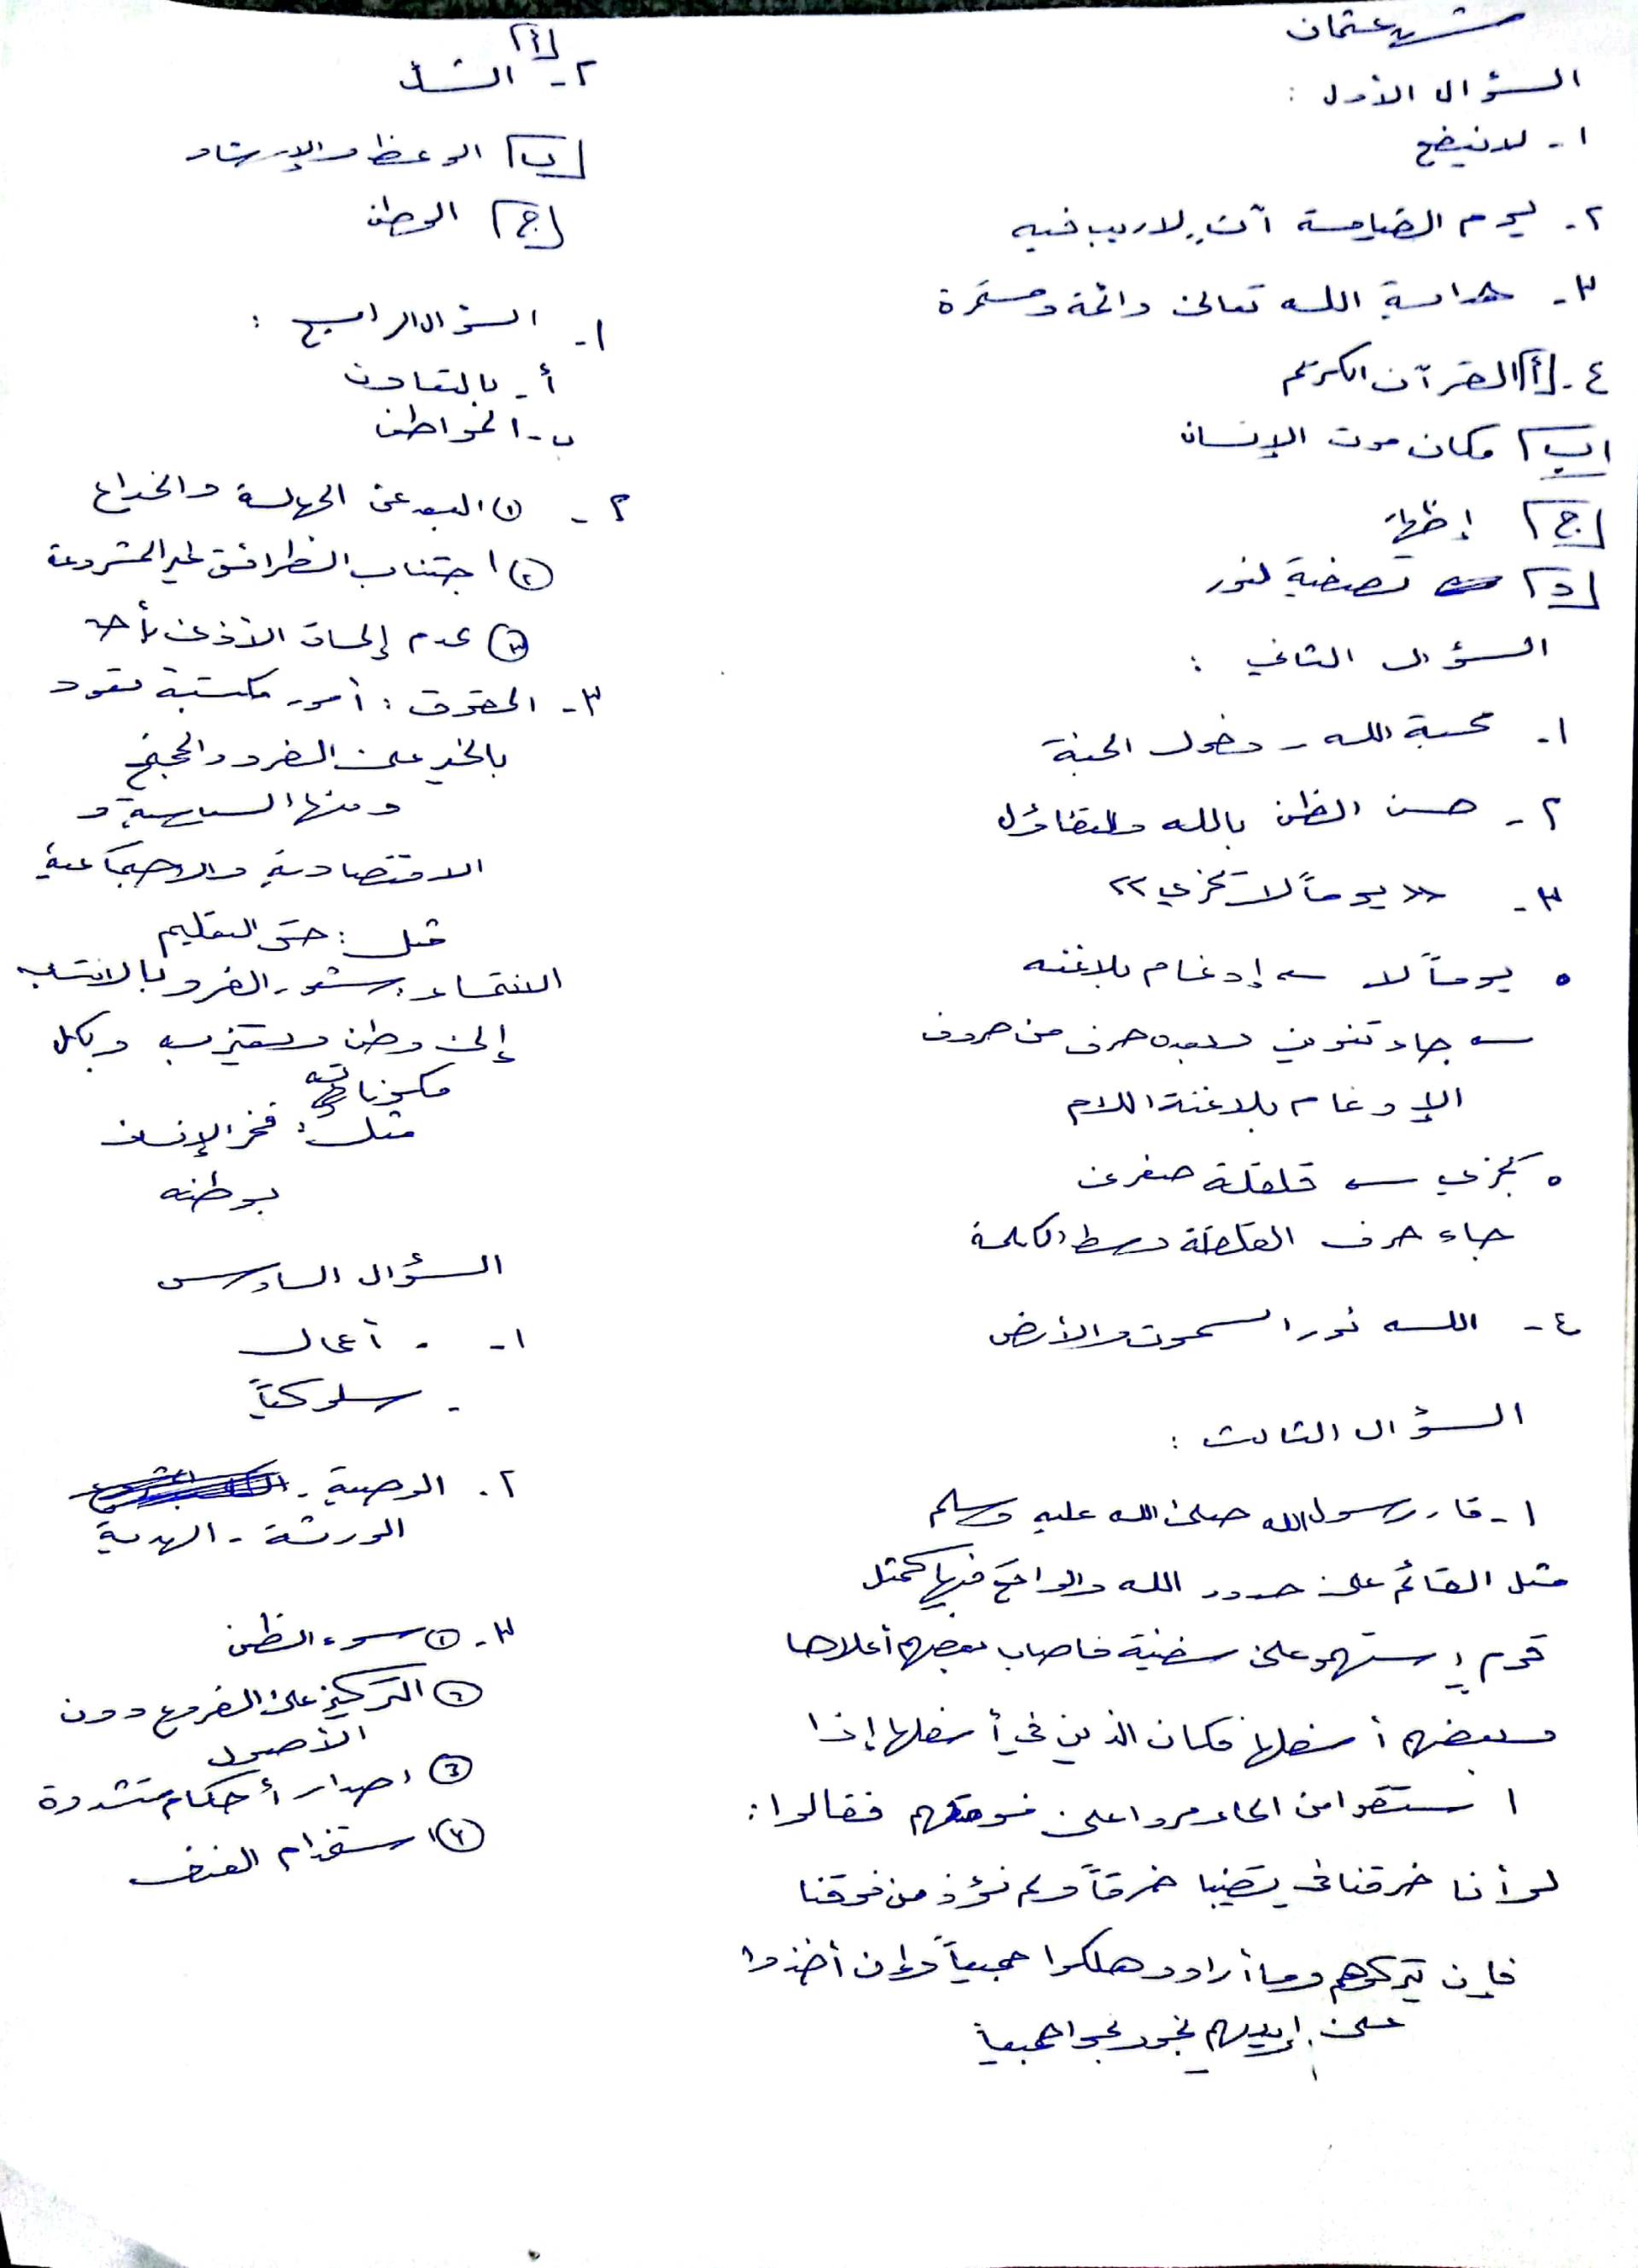 عثمان
السؤال الأول :
١- لا نيضع
٢- يوم القيامة آتٍ لا ريب فيه
٣- هداية الله تعالى دائمة ومستمرة
٤- أ القرآن الكريم
ب مكان موت الإنسان
ج إظهار
د تصفية لنور
السؤال الثاني :
١- محبة الله - دخول الجنة
٢- حسن الظن بالله والتفاؤل
٣- « يوماً لا تجزي »
• يوماً لا إدغام بلاغنه
جاء تنوين وبعده حرف من حروف
الإدغام بلاغنة اللام
• تجزي قلقلة صغرى
جاء حرف القلقلة وسط الكلمة
٤- الله نور السموت والأرض
السؤال الثالث :
١- قال رسول الله صلى الله عليه وسلم
مثل القائم على حدود الله والواقع فيها كمثل
قوم إستهمو على سفينة فاصاب بعضهم أعلاها
وبعضهم أسفلها فكان الذين في أسفلها إذا
استقوا من الماء مروا على فوقهم فقالوا :
لو أنا خرقنا في نصيبنا خرقاً ولم نؤذ من فوقنا
فإن تركوهم وما أرادو هلكوا جميعاً وإن أخذوا
على إيديهم نجو ونجوا جميعاً
أ
٢- الشك
ب الوعظ والإرشاد
ج الوطن
السؤال الرابع :
١-
أ- بالتعاون
ب- المواطن
٢- ① البعد عن الجهالة والخداع
② اجتناب الطرائق غير المشروعة
③ عدم إلحاق الأذى بأحد
٣- الحقوق : أمور مكتسبة تعود
بالخير على الفرد والمجتمع
ومنها السياسية و
الاقتصادية والاجتماعية
مثل : حق التعليم
الانتماء : شعور الفرد بالانتساب
إلى وطن ويعتز به وبكل
مكوناته
مثل : فخر الإنسان
بوطنه
السؤال السادس
١- - أعمال
- سلوكياً
٢- الوصية -
الورثة - الهدية
٣- ① سوء الظن
② التركيز على الفروع دون
الأصول
③ اصدار أحكام متشددة
④ استخدام العنف